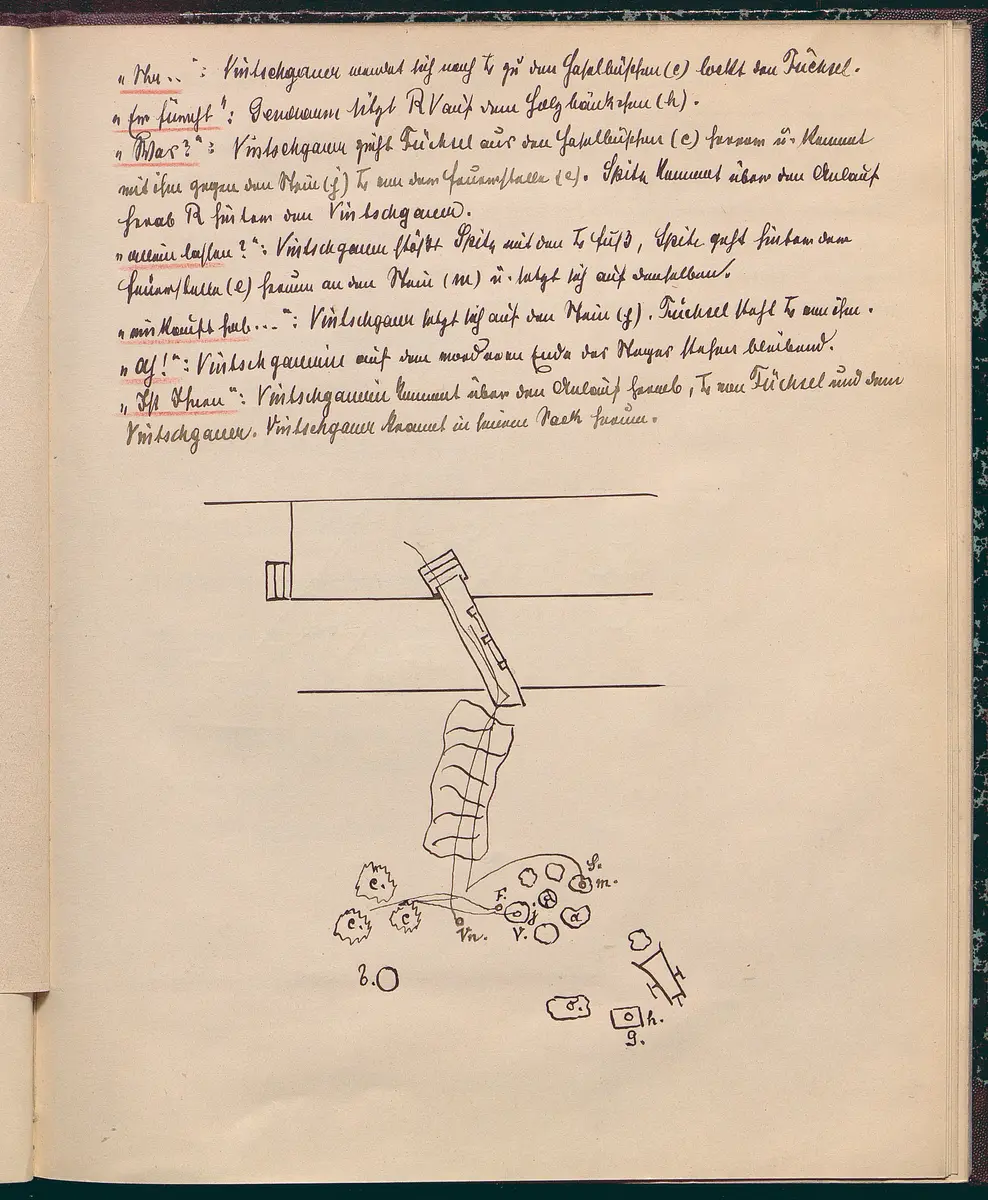 „ Nu .. “: Vintschgauer wendet sich nach L zu den Haselbüschen (c) lockt den Füchsel.
„ Er fürcht “: Gendarm sitzt R V auf dem Holzbänkchen (h).
„ Was? “: Vintschgauer zieht Füchsel aus den Haselbüschen (c) hervor u. kommt
mit ihm gegen den Stein (j) L von der Feuerstelle (e). Spitz kommt über den Anlauf
herab R hinter den Vintschgauer.
„ allein lassen ? “: Vintschgauer stößt Spitz mit den L Fuß, Spitz geht hinter der
Feuerstelle (e) herum an den Stein (m) u. setzt sich auf denselben.
„ einkauft hab... “: Vintschgauer setzt sich auf den Stein (j). Füchsel steht L von ihm.
„ Ah! “: Vintschgauerin auf dem vorderen Ende des Steges stehen bleibend.
„ Ist Ihnen “: Vintschgauerin kommt über den Anlauf herab, L von Füchsel und dem
Vintschgauer. Vintschgauer kramt in seinem Sack herum.
S.
c. m.
F. j
c. c a
Vn. V.
b.
h.
g.